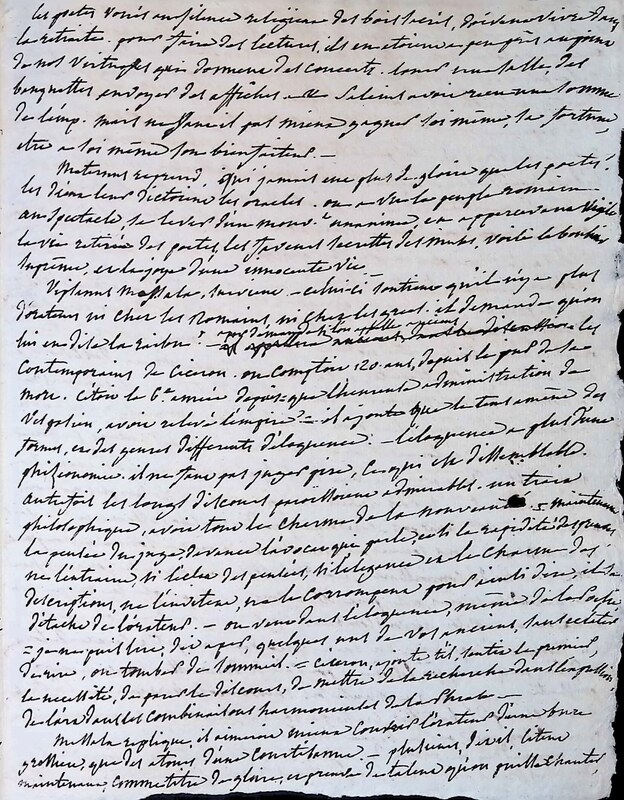 les poetes voués au silence religieux des bois sacrés, doivent vivre dans
la retraite. pour faire des lectures, ils en étoient a peu près au point
de nos virtuoses qui donnent des concerts. louer une salle, des
banquettes envoyer des affiches. Saleius avoir recu une somme
de l'emp. mais ne faut il pas mieux gagner soi même, sa fortune,
etre a soi même son bienfaiteur. —
Maternus reprend, qui jamais eut plus de gloire que les poetes!
les dieux leur dictoient les oracles. on a vu le peuple romain
au spectacle se lever d'un mouvt unanime en appercevant Virgile
la vie retirée des poetes, les faveurs secrettes des muses, voilà le bonheur
suprême, et la joye d'une innocente vie.
Vipsanus Messala, survient — celui-ci soutient qu'il n'y a plus
d'orateurs ni chez les Romains, ni chez les grecs. il demande qu'on
lui en dise la raison? les
contemporains de Ciceron. on compte 120 ans, depuis le jour de sa
mort. c'étoit la 6e année depuis que l'heureuse administration de
Vespasien, avoit relevé l'empire = il ajoute que le tems amène des
formes, et des genres differents d'éloquence. — l'éloquence a plus d'une
phisionomie. il ne faut pas juger pire, ce qui est dissemblable.
autrefois les longs discours paroissoient admirables. un trait
philosophique, avoit tout le charme de la nouveauté. — maintenant
la pensée du juge devance l'avocat qui parle, et si la rapidité des preuves
ne l'entraine, si l'eclat des pensées, si l'elegance et le charme des
descriptions, ne l'invitent, ne le corrompent pour ainsi dire, il se
détache de l'orateur. — on veut dans l'éloquence, même de la poésie
= je ne puis lire, dit aper, quelques uns de vos anciens, sans eclater
de rire, ou tomber de sommeil. = Ciceron, ajoute t'il, sentit le premier,
la necessité, de parer le discours, de mettre de la recherche dans l'expression,
de l'art dans les combinaisons harmonieuses de la phrase —
Messala replique, il aimeroit mieux couvrir l'orateur d'une bure
grossiere, que des atours d'une courtisanne. — plusieurs, dit il, citent
maintenant, comme titre de gloire, et preuve de talent qu'on puisse chanter,